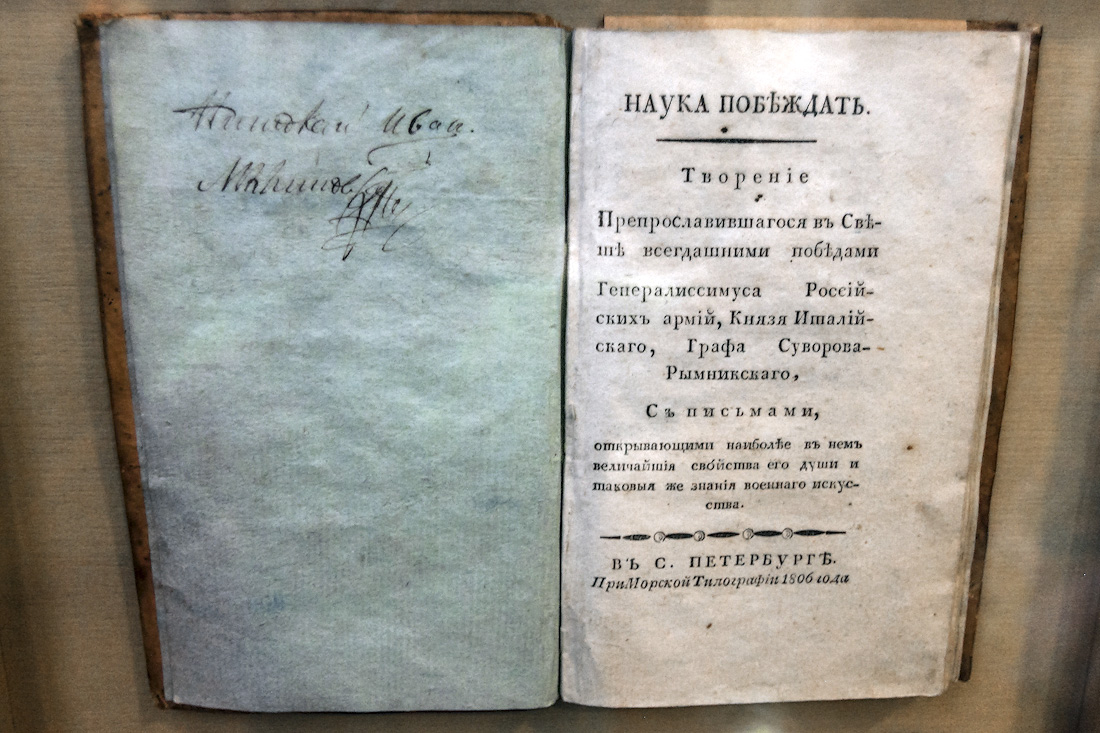 Иван.
НАУКА ПОБѢЖДАТЬ.
Твореніе
Препрославившагося въ Свѣ-
тѣ всегдашними побѣдами
Генералиссимуса Россій-
скихъ армій, Князя Италій-
скаго, Графа Суворова-
Рымникскаго,
Съ письмами,
открывающими наиболѣе въ немъ
величайшія свойства его души и
таковыя же знанія военнаго искус-
ства.
ВЪ С. ПЕТЕРБУРГѢ.
При Морской Типографіи 1806 года